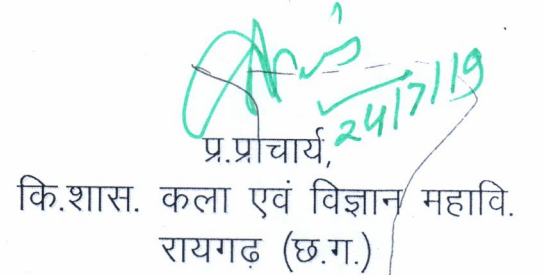 24/7/19
प्र.प्राचार्य,
कि.शास. कला एवं विज्ञान महावि.
रायगढ़ (छ.ग.)